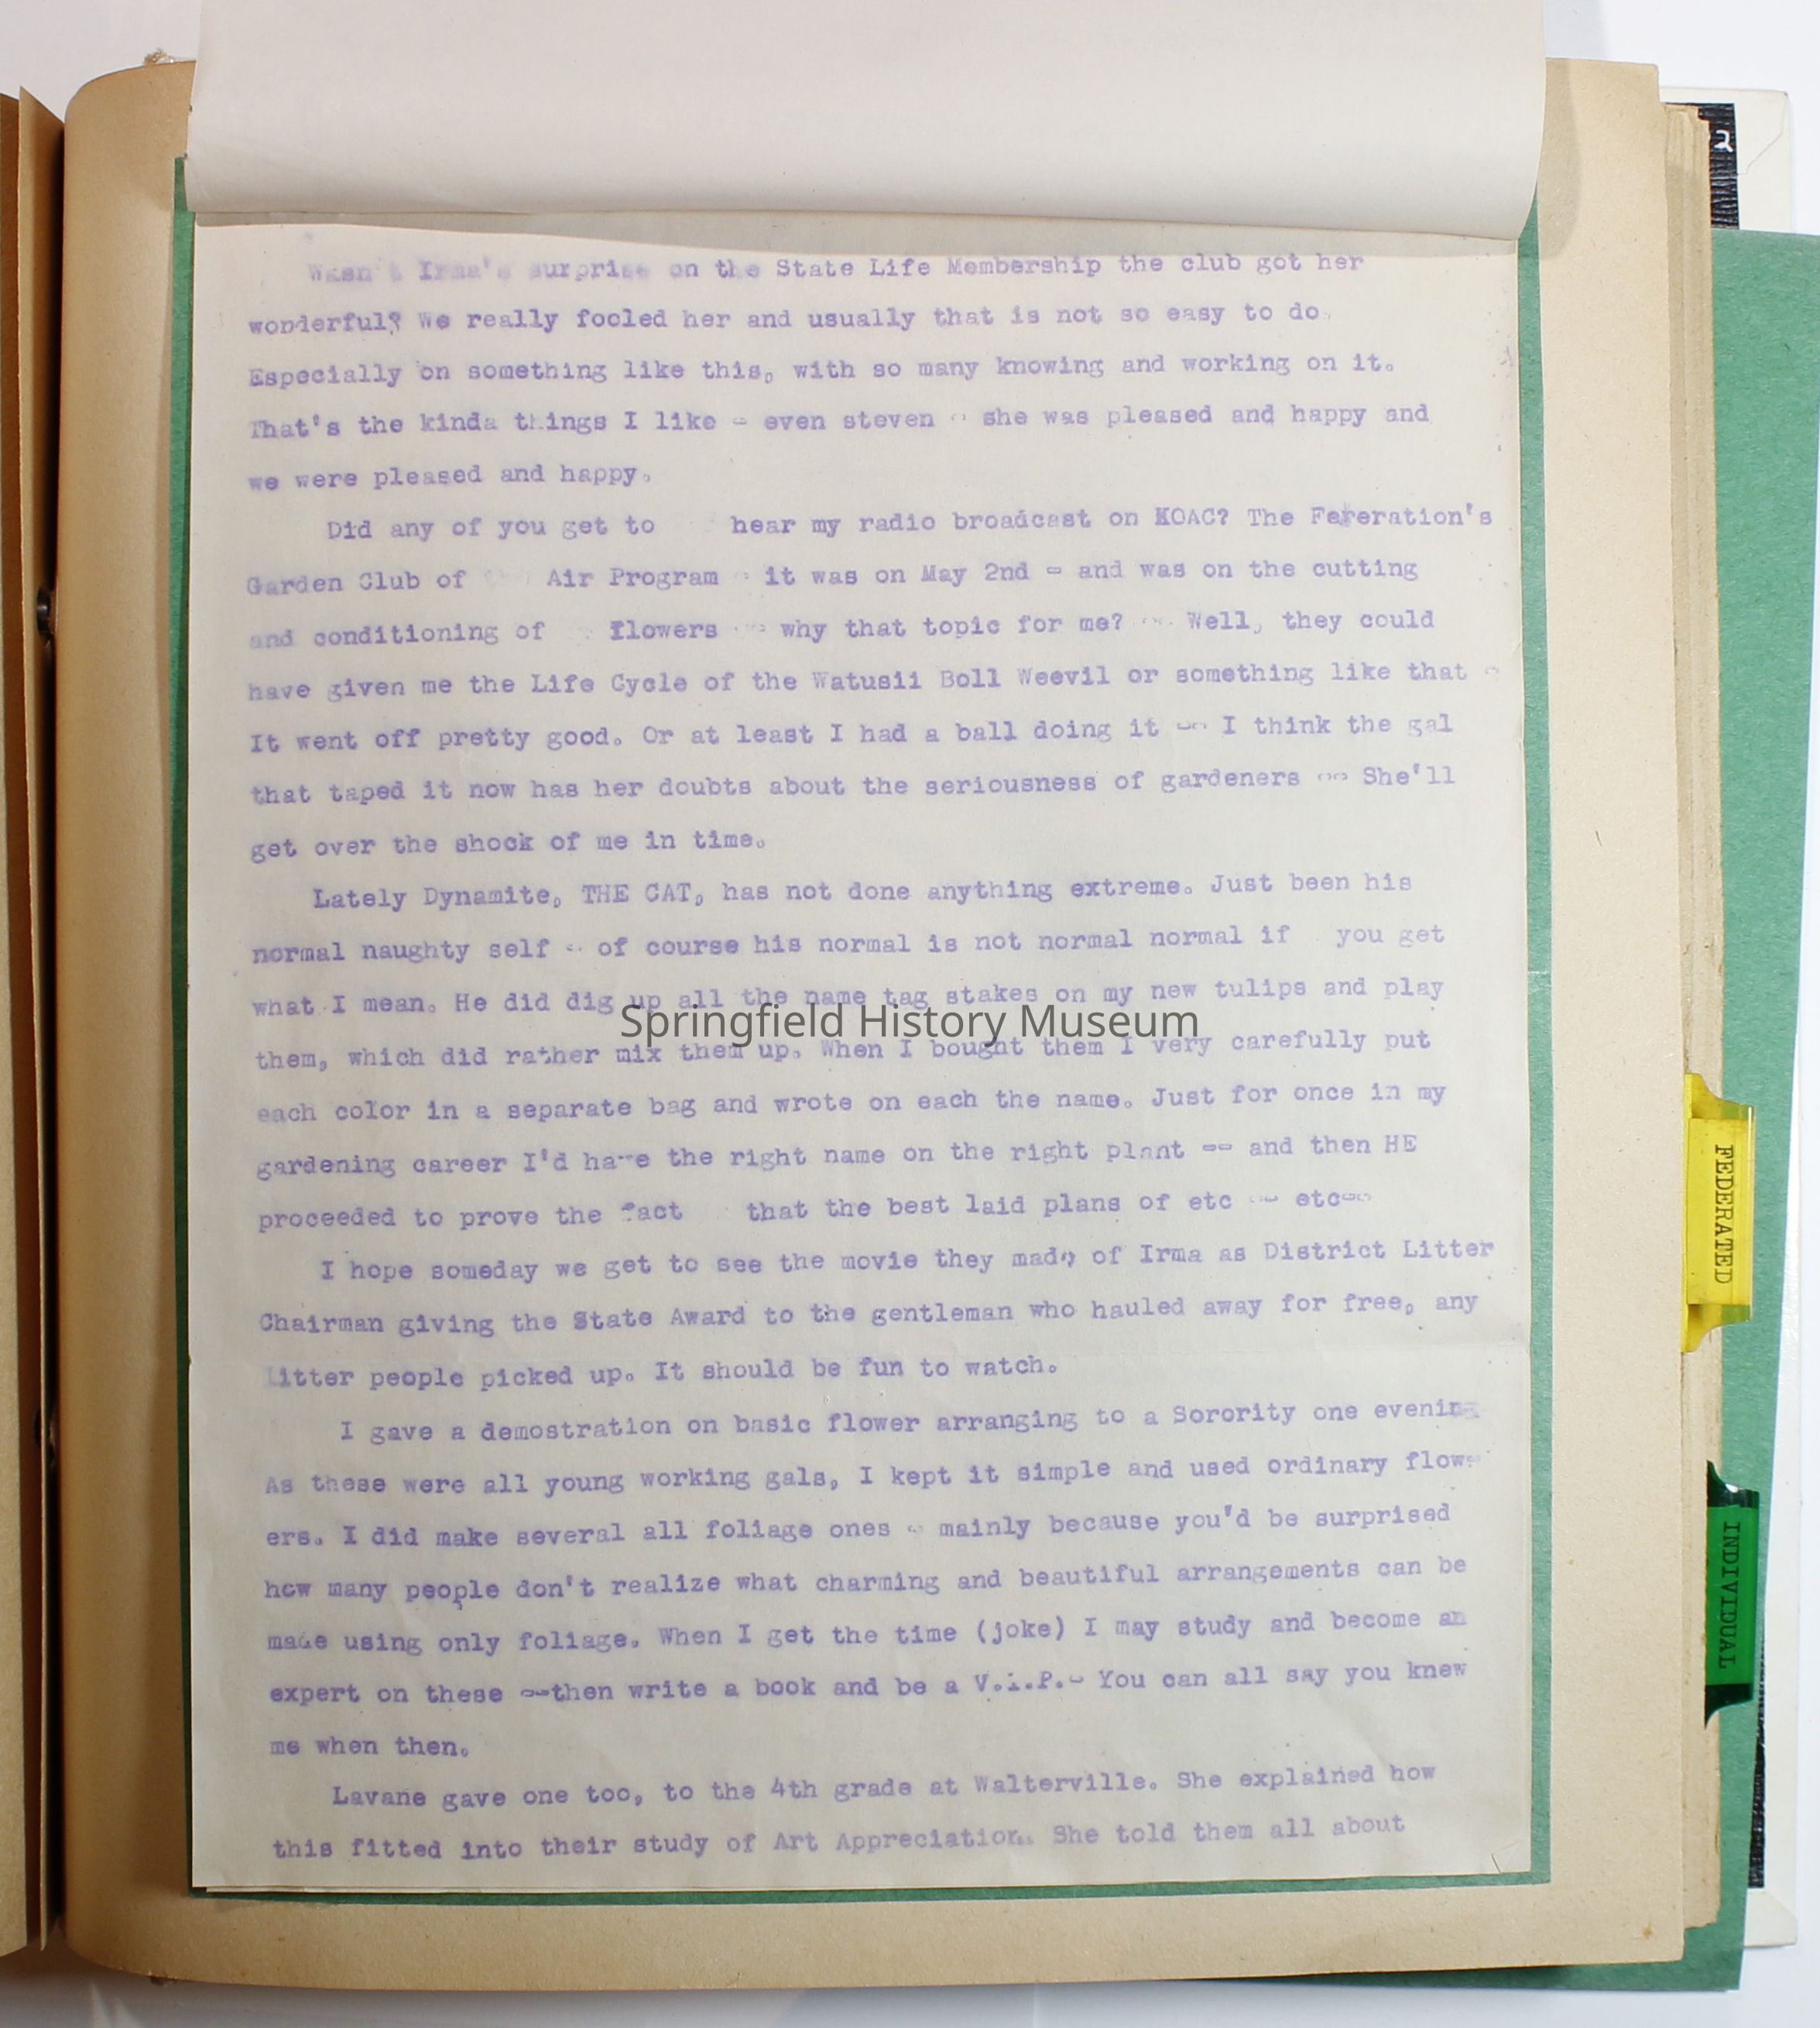 Wasn't Irma's surprise on the State Life Membership the club got her
wonderful? We really fooled her and usually that is not so easy to do.
Especially on something like this, with so many knowing and working on it.
That's the kinda things I like - even steven - she was pleased and happy and
we were pleased and happy.
Did any of you get to hear my radio broadcast on KOAC? The Fereration's
Garden Club of Air Program - it was on May 2nd - and was on the cutting
and conditioning of flowers -- why that topic for me? -- Well, they could
have given me the Life Cycle of the Watusii Boll Weevil or something like that -
It went off pretty good. Or at least I had a ball doing it -- I think the gal
that taped it now has her doubts about the seriousness of gardeners -- She'll
get over the shock of me in time.
Lately Dynamite, THE CAT, has not done anything extreme. Just been his
normal naughty self - of course his normal is not normal normal if you get
what I mean. He did dig up all the name tag stakes on my new tulips and play
Springfield History Museum
them, which did rather mix them up. When I bought them I very carefully put
each color in a separate bag and wrote on each the name. Just for once in my
gardening career I'd have the right name on the right plant -- and then HE
proceeded to prove the fact that the best laid plans of etc -- etc--
I hope someday we get to see the movie they made of Irma as District Litter
Chairman giving the State Award to the gentleman who hauled away for free, any
Litter people picked up. It should be fun to watch.
I gave a demostration on basic flower arranging to a Sorority one evening
As these were all young working gals, I kept it simple and used ordinary flow-
ers. I did make several all foliage ones - mainly because you'd be surprised
how many people don't realize what charming and beautiful arrangements can be
made using only foliage. When I get the time (joke) I may study and become an
expert on these --then write a book and be a V.i.P.- You can all say you knew
me when then.
Lavane gave one too, to the 4th grade at Walterville. She explained how
this fitted into their study of Art Appreciation. She told them all about
FEDERATED
INDIVIDUAL
2